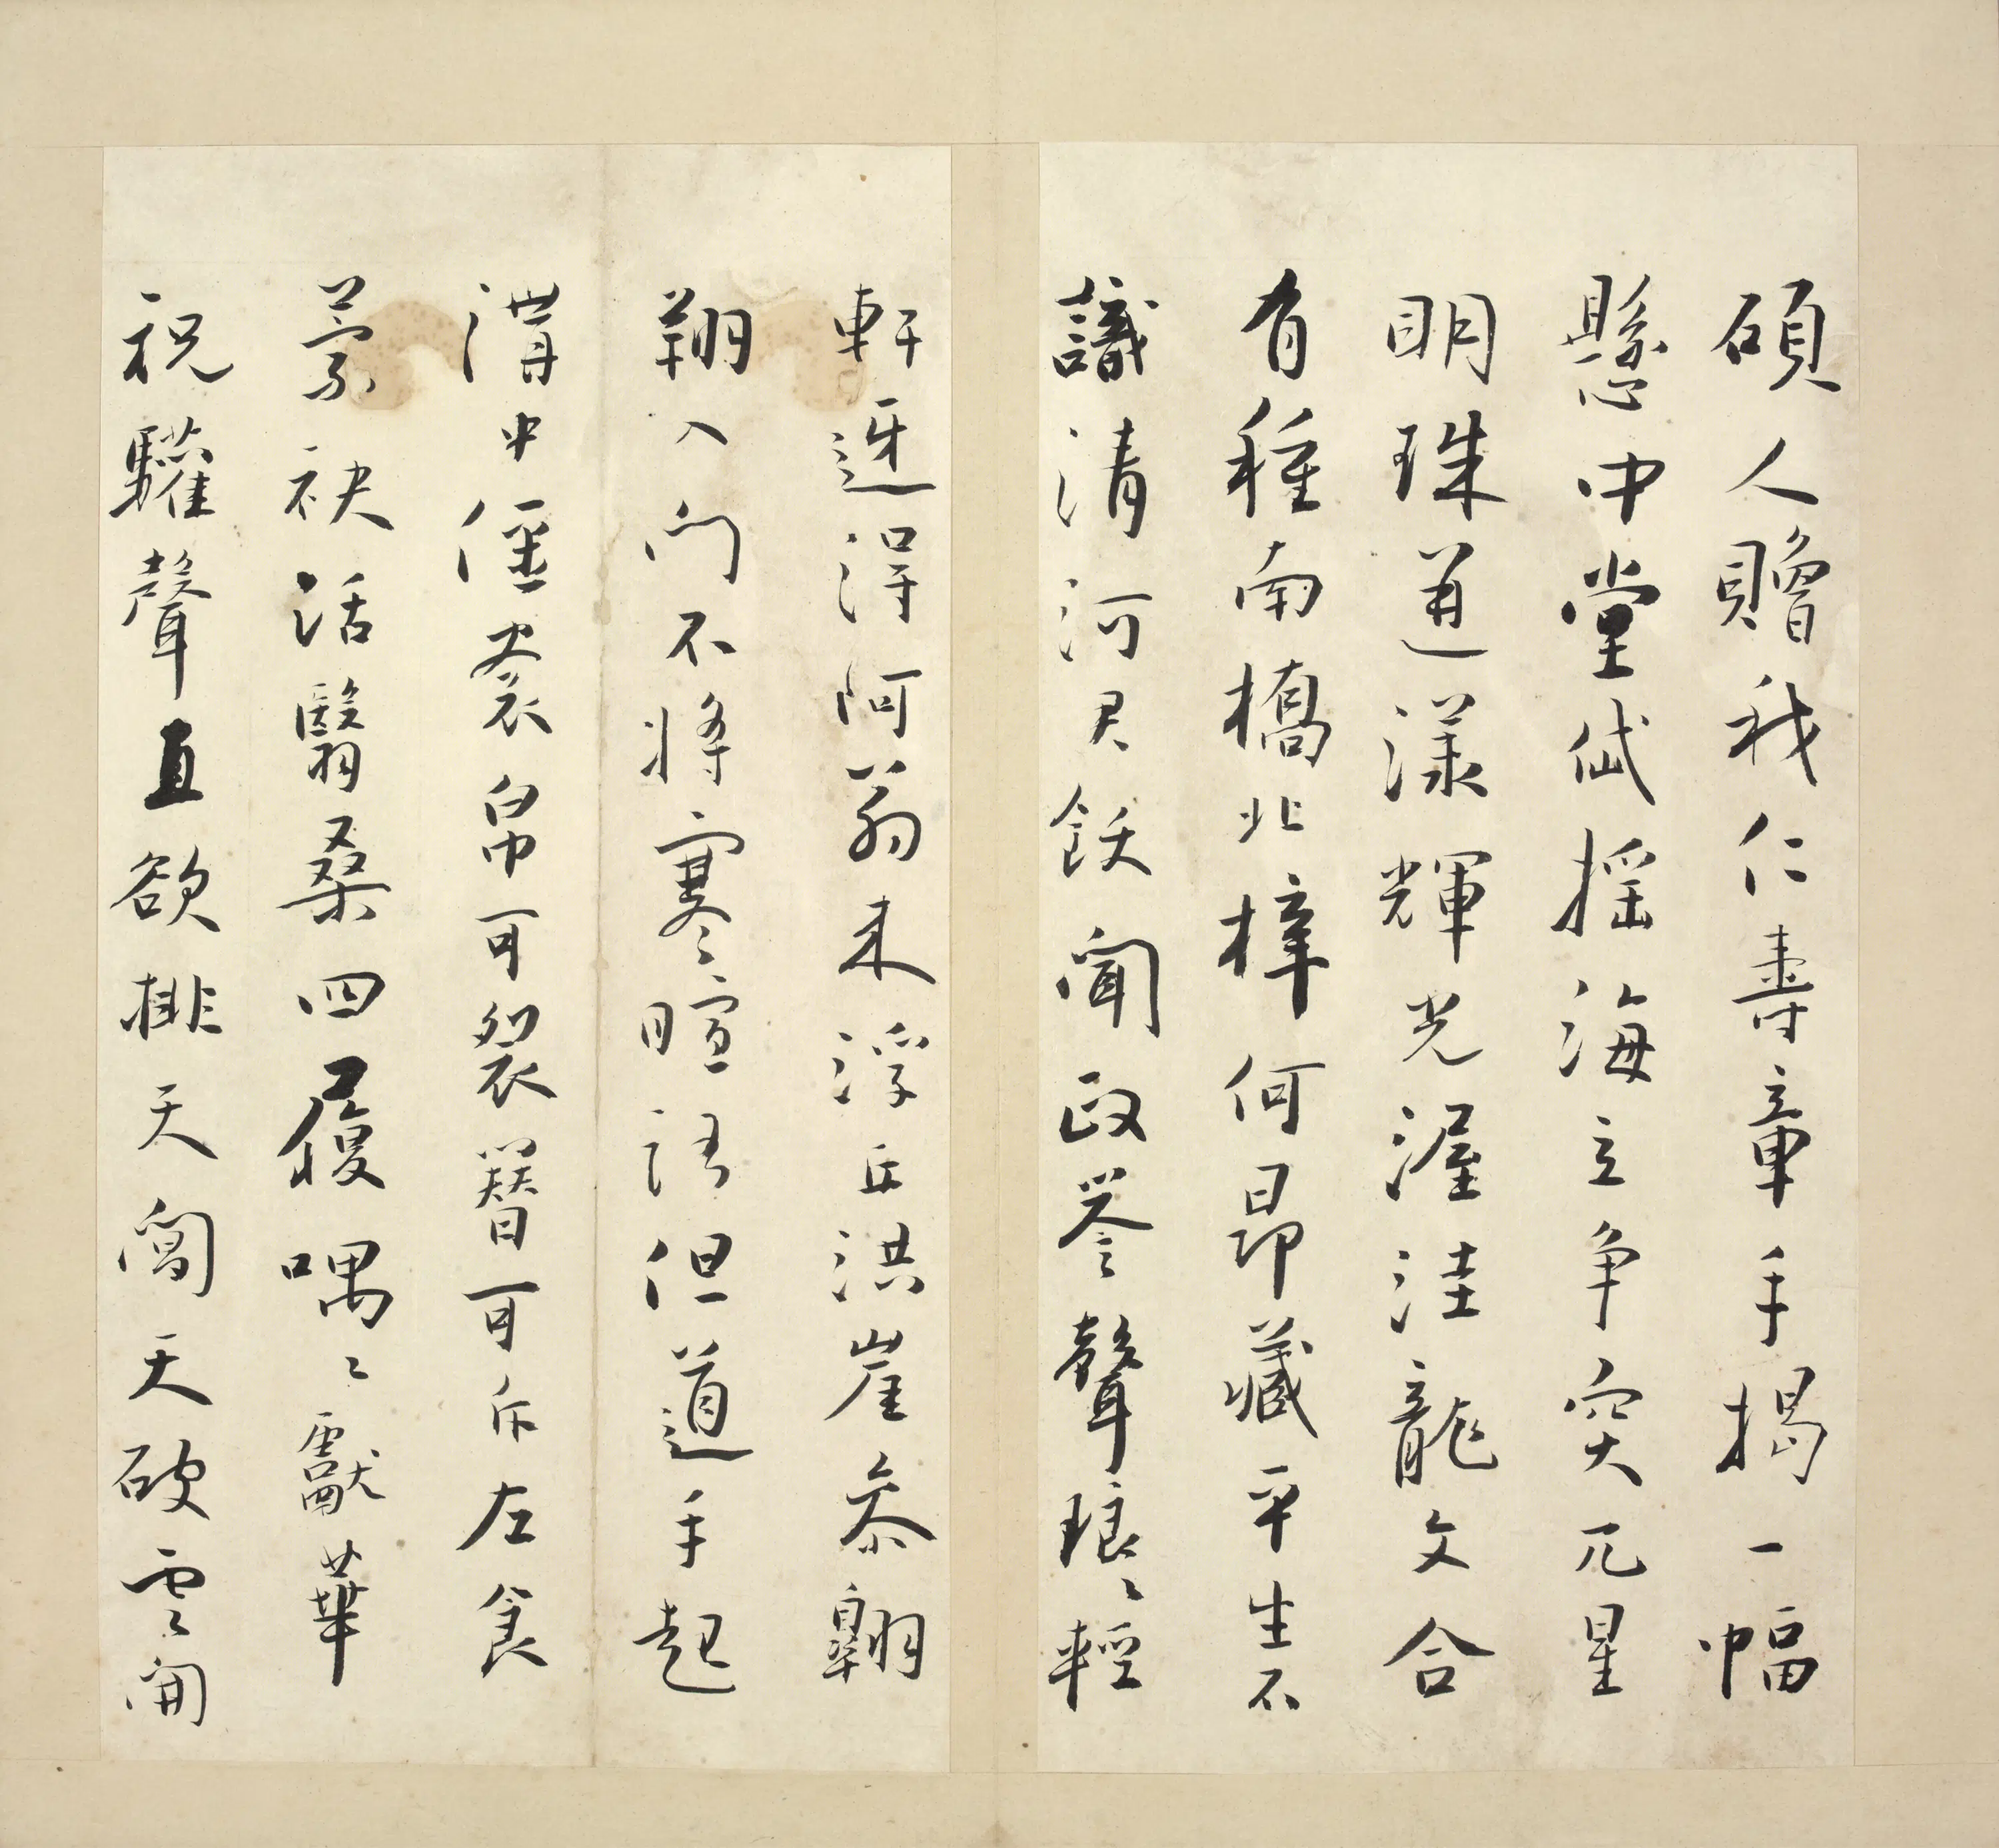 碩人贈我仁壽章手揭一幅
懸中堂岱搖海立爭突兀星
明珠迸漾輝光渥洼龍文合
有種南橋北梓何昂藏平生不
識清河君飫聞政譽聲琅〻輕
軒迓得阿翁来浮丘洪崖參翱
翔入門不將寒暄語但道手起
溝中僵衾帛可裂簪可斥左食
蒙袂活翳桑四履喁〻獻華
祝驩聲直欲排天閶天破雲開